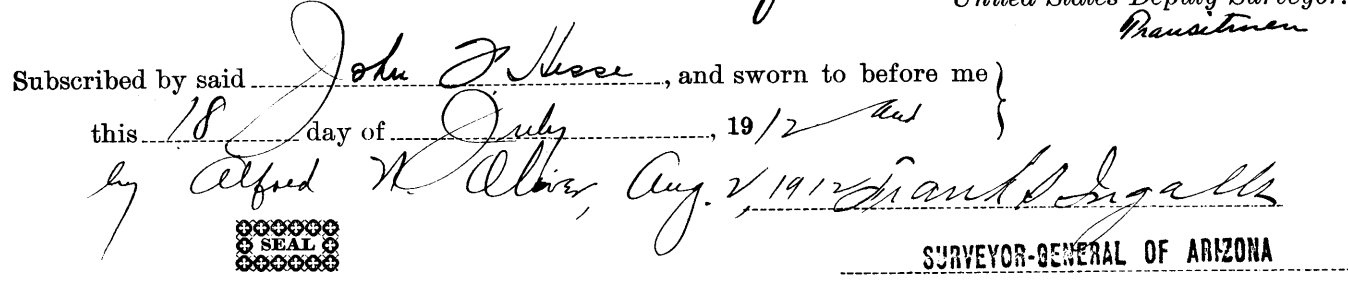 United States Deputy Surveyor.
Transitmen
Subscribed by said John F Hesse, and sworn to before me
this 18 day of July, 1912 and
by Alfred N. Oliver, Aug. 2, 1912 Frank S Ingalls
SEAL
SURVEYOR-GENERAL OF ARIZONA